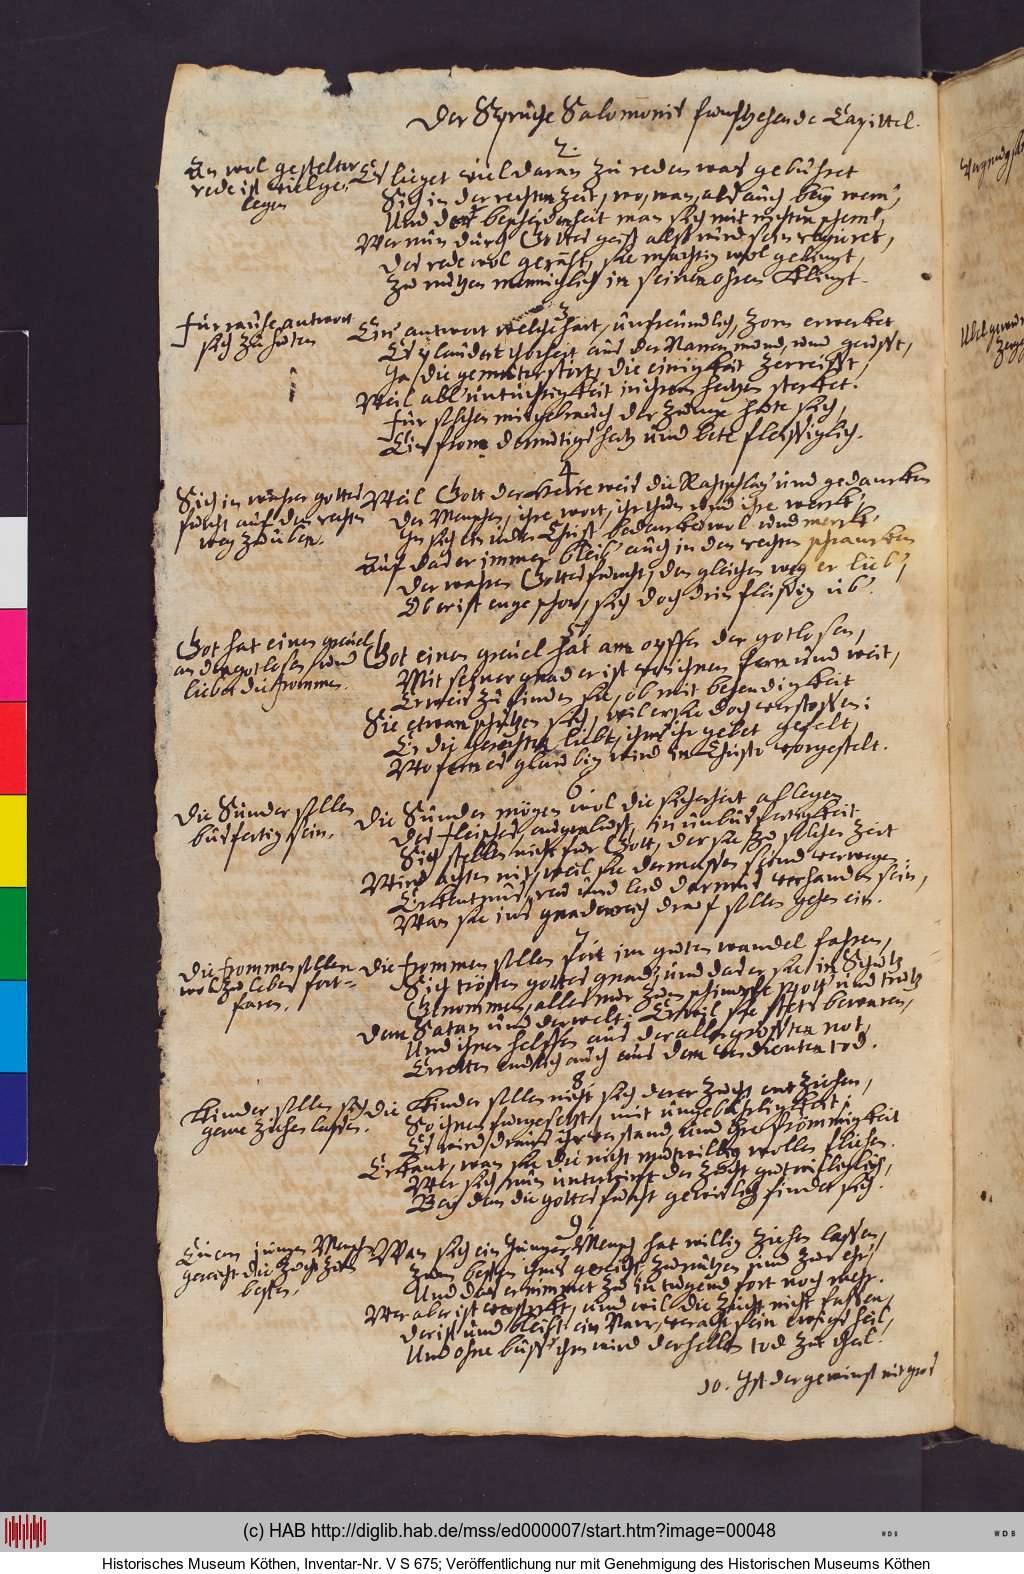 Der Sprüche Salomonis funfzehende Capittel.
2.
Ein wol gestelter
rede ist viel gele
legen
Es lieget viel daran zu reden was gebühret
Sich in der rechten zeit, wo, wan, als auch bey wem,
Und der bescheidenheit man sich mit nichten schem,
Wer nun durch Gottes geist alhst wird sein regieret,
Des rede wol geräht, sie mächtig wol gelingt,
Zu nutzen menniglich in seinen ohren klingt.
3.
Für rauhe antwort
sich zu hüten
Ein' antwort welche hart, unfreundlich, zorn erwecket
Es plaudert thorheit aus der Narren mund, und
Ja die gemüter stört, die einigkeit zerreisst,
Weil all' untüchtigkeit in ihrem hertzen stecket.
Für solchem misgebrauch der zunge hüte sich,
Ein from demütigs hertz und bete fleissiglich.
4
Sich in wahrer gottes
furcht auf dem rechten
weg zu üben.
Weil Gott der Herre weis die Rahtschläg' und gedancken
Der Menschen, ihre wort, ihr thun und ihre werck,
In sich ein ieder Christ bedencke wol und merck,
Auf das er immer bleib' auch in den rechten schrancken
Der wahren Gottesfurcht, den gleichen weg er lieb',
Ob er ist enge schon, sich doch drin fleissig üb'.
5.
Got hat einen greuel
an den gotlosen und
liebet die frommen.
Got einen greuel hat am opffer der gotlosen,
Mit seiner gnad er ist von ihnen fern und weit,
Er weis zu finden sie, ob mit behendigkeit
Sie etwan schützen sich, weil er sie doch verstossen:
Er die gerechten liebt, ihm ihr gebet gefelt,
Wofern es glaubig wird in Christo vorgestelt.
6.
Die Sünder sollen
busfertig sein.
Die Sünder mögen wol die sicherheit ablegen
Des fleisches augenlust, in unbusfertigkeit
Sich stellen nicht für Gott, der sie zu solcher zeit
Wird achten nit, weil sie dermassen seind verwegen:
Erkentnus, reu und leid der mus verhanden sein,
Wan sie ins gnadenreich drauf sollen gehen ein.
7
Die frommen sollen
wol zu leben fort-
faren.
Die frommen sollen fort im guten wandel fahren,
Sich trösten gottes gnad, und das er sie in Schutz
Genommen, alles nur zum schimpffe spott' und trutz
Dem Satan und der welt: Er wil sie stets bewaren,
Und ihnen helffen aus der allergrösten not,
Erretten endlich auch aus dem verdienten tod.
8.
Kinder sollen sich
gerne ziehen lassen.
Die Kinder sollen nicht sich derer zucht entziehen,
So ihnen furgesetzt, mit ungebürligkeit,
Es wird draus ihr verstand, und ihre frömmigkeit
Erkant, wan sie die nicht mutwillig wollen fliehen.
Wer sich nun unterwirft der zucht gutwilliglich,
Bey dem die gottesfurcht gewislich findet sich.
9.
Einem jungen Mensch
gereicht die zucht zum
besten.
Wan sich ein junger Mensch hat willig ziehen lassen,
Zum besten ihms gereicht, zu nutzen und zur ehr,
Und das er nimmet zu in tugend fort noch mehr.
Wer aber ist verstockt, und wil die zucht nicht fassen,
Der ist und bleibt ein Narr, veracht sein ewigs heil,
Und ohne buss' ihm wird derselben tod zu theil.
10. Ist der gewinst nit gros
(c) HAB http://diglib.hab.de/mss/ed000007/start.htm?image=00048
Historisches Museum Köthen, Inventar-Nr. V S 675; Veröffentlichung nur mit Genehmigung des Historischen Museums Köthen